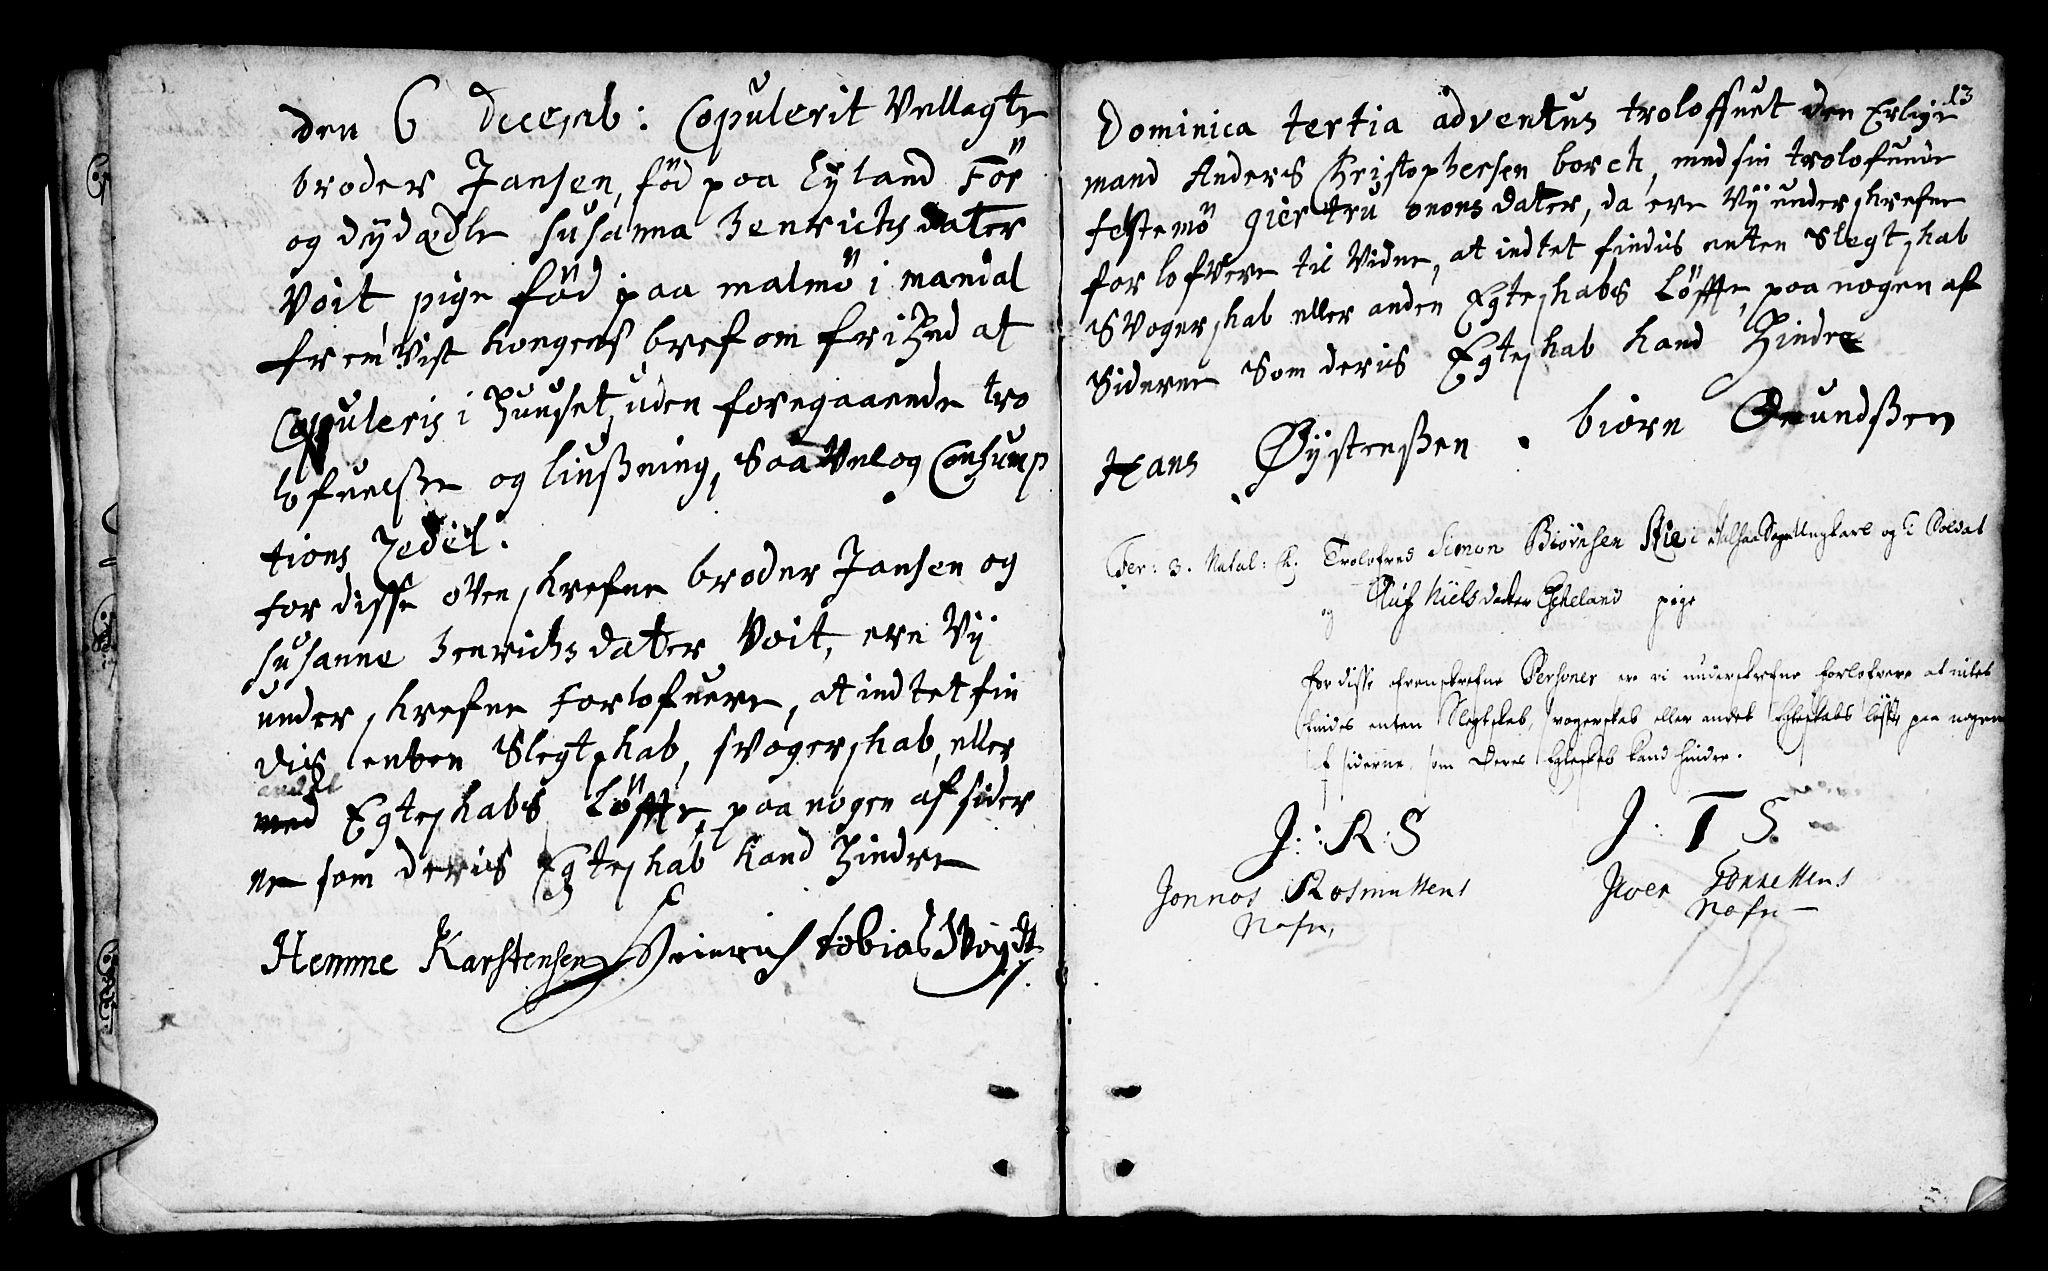 den 6 Decemb: Copulerit Vellagte
broder Jansen, föd paa Eyland För
og dÿdædle susanna Henrichs dater
Voit pige född paa malmö i mandal
frem Vist kongens bref om frihed at
Copuleris i Huuset, uden foregaaende tro
lofuelsße og liußning, Saa Vel og Consump
tions Zedel.
for disse oven skrefne broder Jansen og
susanne Henrichs dater Voit, ere Vÿ
under skrefne Forlofuere, at indtet fin
dis enten Slegtskab, svogerskab, eller
andet
med Egteskabs Löffte, paa nogen af sider
ne som deris Egteskab kand Hindre
Hemme Karstensen Heinrich tobias Voÿdt
13
Dominica tertia adventus troloffuet den Erlige
mand Anders Christophersen borch, med sin trolofuede
festemö giertru onons dater, da ere Vÿ underskrefne
forlofvere til Vidne, at indtet findis enten Slegtskab
SVogerskab eller anden Egteskabs Löffte, paa nogen af
Siderne Som deris Egteskab kand Hindre
Hans Øÿstensßen . biörn Omundsßen
Fer: 3. Natal: Trolofved Simon Biörnsen Stie i Halsaa Sogn Ungkarl og Soldat
og Niels datter Eskeland pige
for disse ofvenskrefne Personer ere vi underskrefne forlofvere at intet
findes enten Slegtskab, svogerskab eller andet Egteskabs löfte paa nogen
af siderne, som deres Egteskab kand hindre.
J: R: S J. T S.
Jonnos Rosmussens Jver Tönnessens
Nafn, Nafn